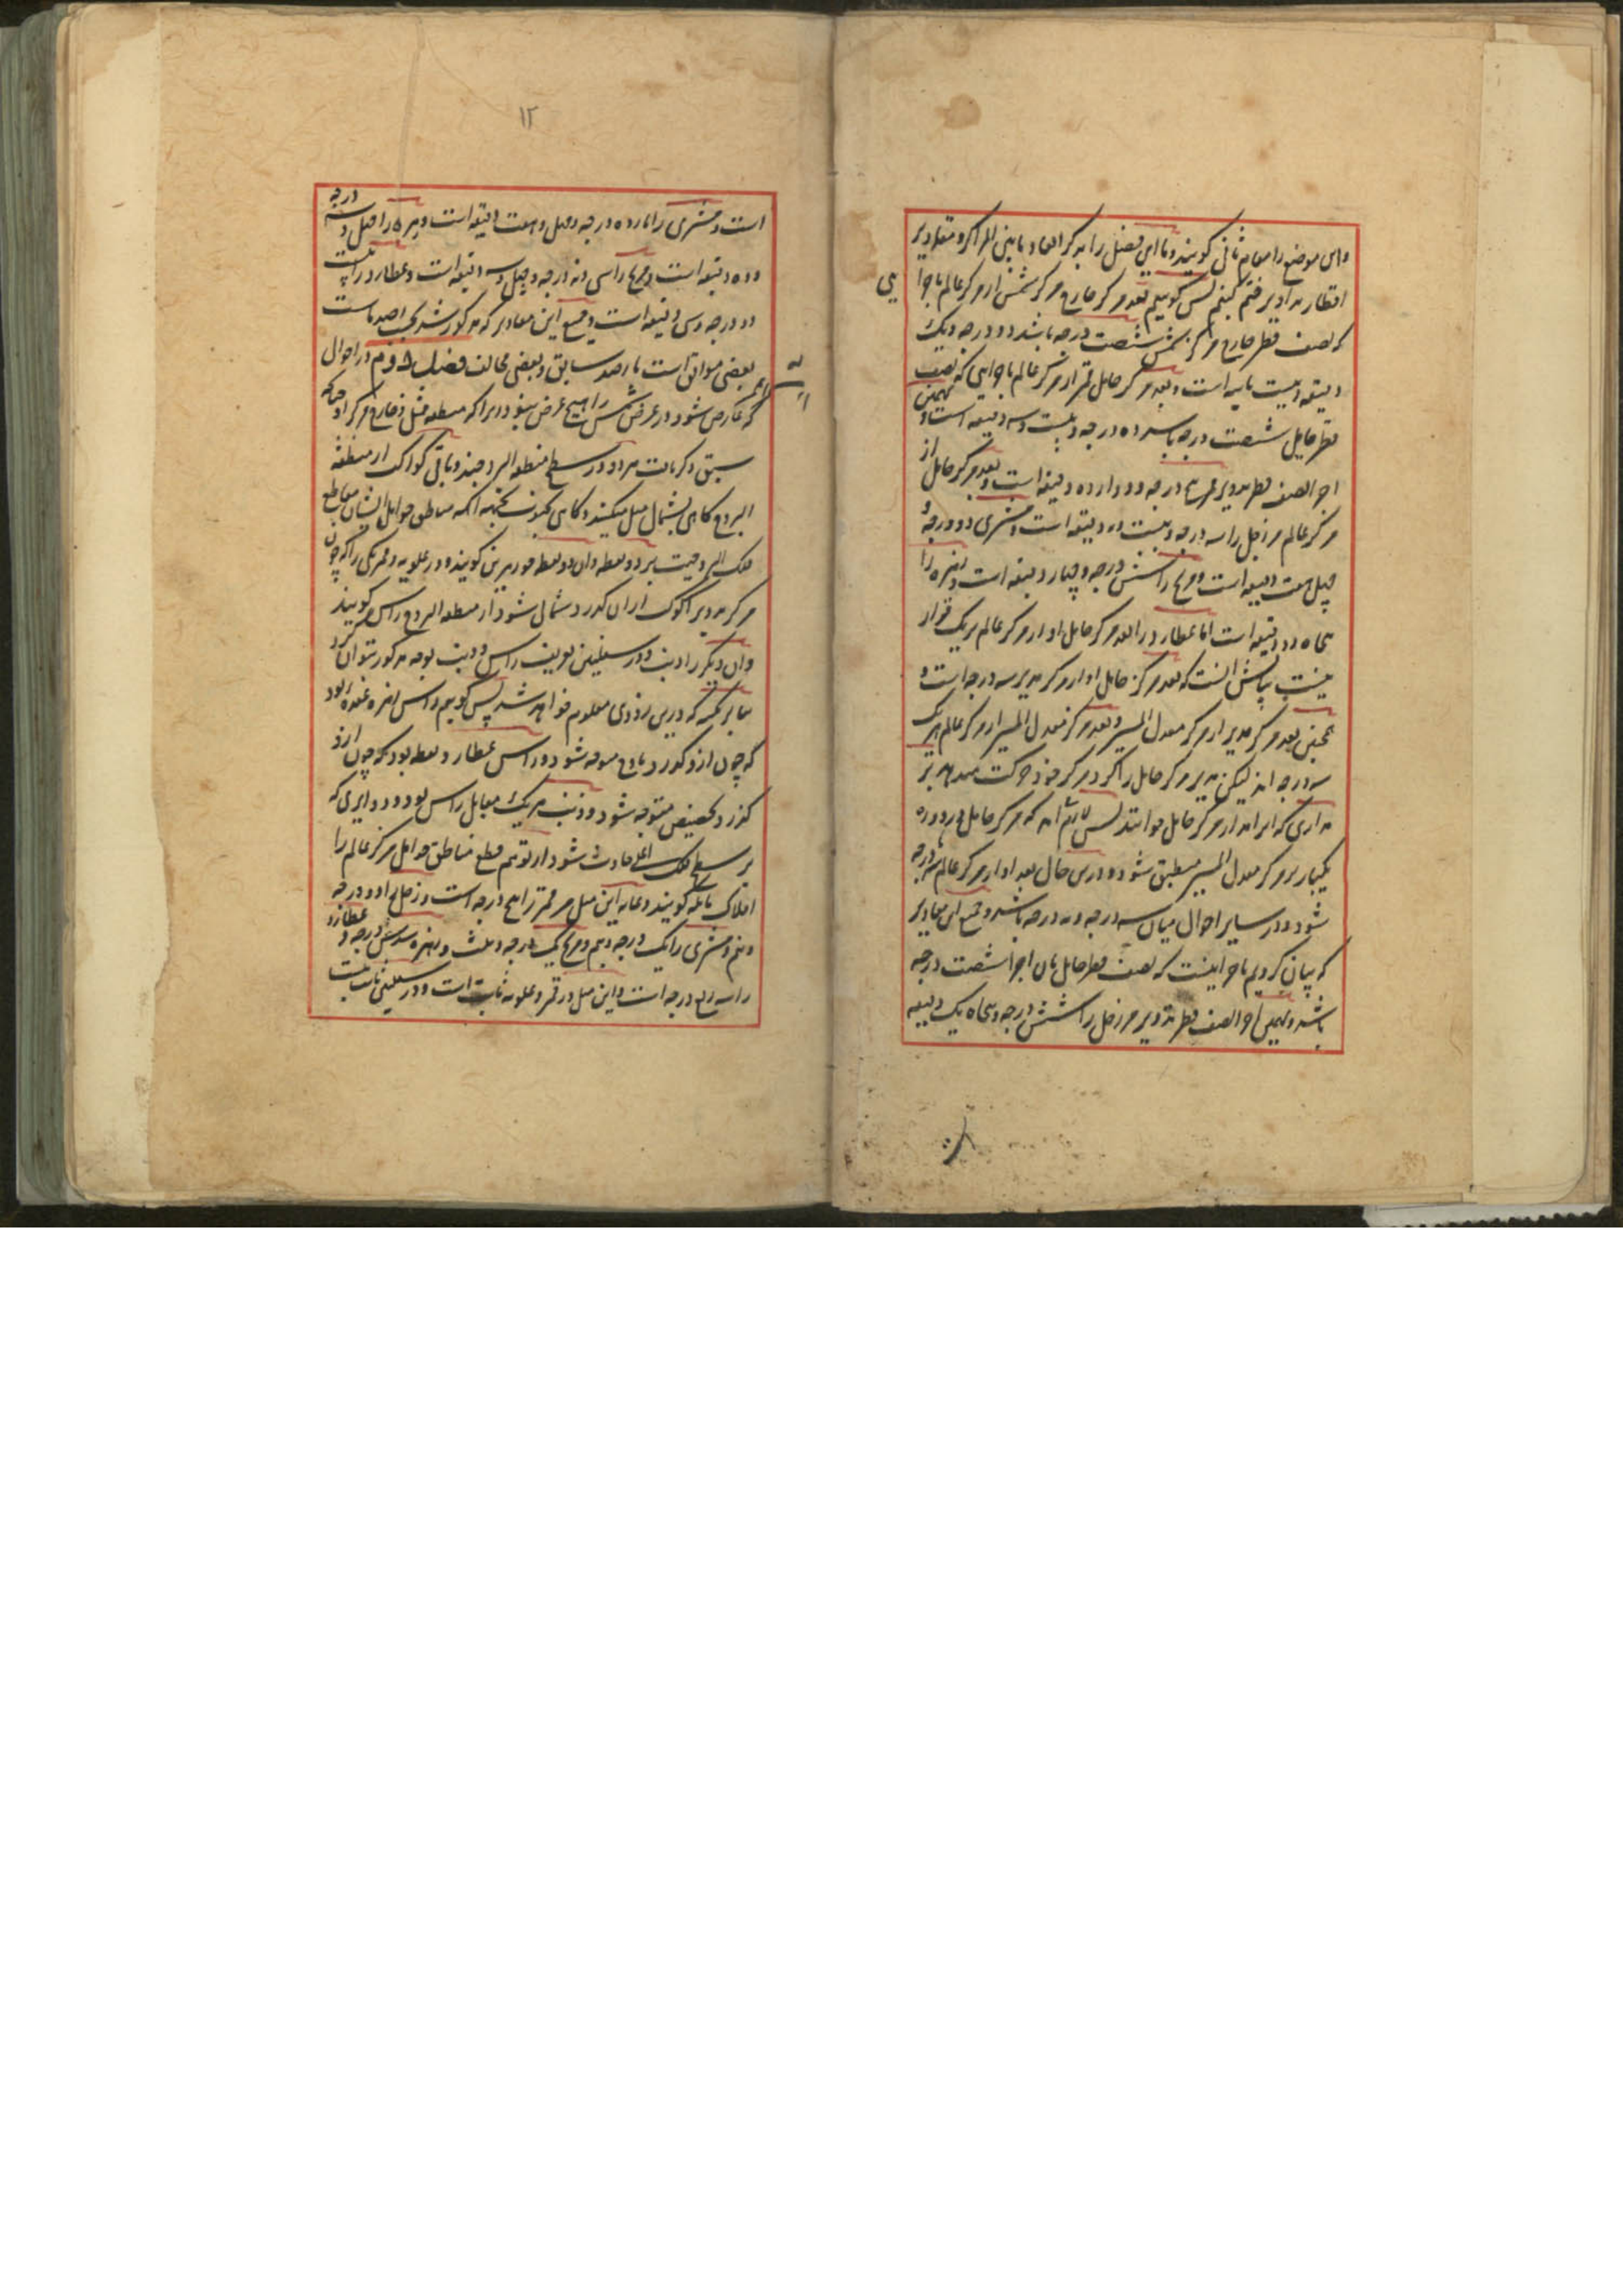 واین موضع را مقام ثانی گویند و ما این فصل را بذکر ابعاد مابین المراکز و مقادیر
اقطار تداویر ختم کنیم پس گوییم بعد مرکز خارج مرکز شمس از مرکز عالم باجزا
یی
که نصف قطر خارج مرکز شمس شصت درجه باشد دو درجه و یک
دقیقه و بیست ثانیه است و بعد مرکز حامل قمر از مرکز عالم باجزایی که نصف
قطر حامل شصت درجه باشد ده درجه و بیست و سه دقیقه است و بهمین
اجزا نصف قطر تدویر درجه و دوازده دقیقه است و بعد مرکز حامل از
مرکز عالم مر زحل را سه درجه و بیست و دقیقه است و مشتری دو درجه و
چهل هفت دقیقه است و مریخ را شش درجه و چهار دقیقه است و زهره را
پنجاه و دو دقیقه است اما عطارد را بعد مرکز حامل او از مرکز عالم بر یک قرار
نیست بیانش آنست که بعد مرکز حامل او از مرکز مدیر سه درجه است و
همچنین بعد مرکز مدیر از مرکز معدل المسیر و بعد مرکز معدل المسیر از مرکز عالم هر یک
سه درجه اند لیکن مدیر مرکز حامل را گرد مرکز خود حرکت میدهد بر
مداری که آنرا مدار مرکز حامل خوانند پس لازم آید که مرکز حامل در هر دوره
یکبار بر مرکز معدل المسیر منطبق شود و درین حال بعد او از مرکز عالم سه درجه
شود و در سایر احوال میان سه درجه و نه درجه باشد و جمیع این مقادیر
که بیان کردیم باجزاییست که نصف قطر حامل بآن اجزا شصت درجه
باشد و بهمین اجزا نصف قطر تدویر مر زحل را شش درجه و پنجاه یک دقیقه
۱۲
است و مشتری را یازده درجه و چهل و هفت دقیقه است و زهره را چهل و سه درجه
و ده دقیقه است و مریخ را سی و نه درجه و چهل و سه دقیقه است و عطارد را بیست
و دو درجه و سی دقیقه است و جمیع این مقادیر که مذکور شد بحسب رصد ماست
بعضی موافق است با رصد سابق و بعضی مخالف فصل دوم در احوال
که عارض شود در عرض شمس را هیچ عرض نبود زیراکه منطقه ممثل و خارج مرکز او چنانکه
سبق ذکر یافت هر دو در سطح منطقة البروجند و باقی کواکب از منطقه
البروج گاهی بشمال میل میکنند و گاهی بجنوب بجهة آنکه مناطق حوامل ایشان مقاطع
فلک البروجست بر دو نقطه و آن دو نقطه جوزهرین گویند و در علویه و قمر یکی را که چون
مرکز تدویر یا کوکب از آن گذرد شمالی شود از منطقة البروج رأس گویند
و آن دیگر را ذنب و در سفلیین تعریف راس و ذنب بوجه مذکور نتوان کرد
بنابر نکته که درین زودی معلوم خواهد شد پس گوییم راس زهره عقده بود
که چون ازو گذرد باوج متوجه شود و راس عطارد نقطه بود که چون ازو
گذرد بحضیض متوجه شود و ذنب هر یک مقابل راس بود و دوایری که
بر سطح فلک اعلی حادث شود از توهم قطع مناطق حوامل مر کره عالم را
افلاک مایله گویند و غایه این میل مر قمر را پنج درجه است و زحل را دو درجه
و نیم و مشتری را یک درجه و نیم و مریخ یک درجه و زهره سدس درجه و عطارد
را سه ربع درجه است و این میل در قمر و علویه ثابت است و در سفلیین ثابت نیست